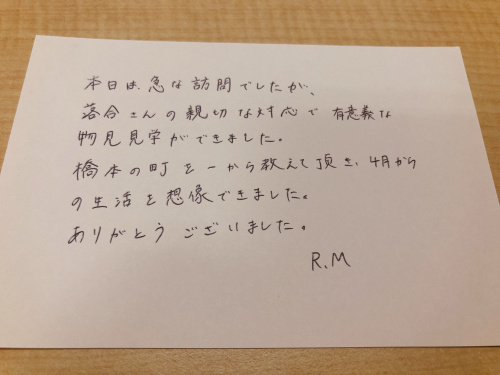 本日は急な訪問でしたが、
落合さんの親切な対応で有意義な
物見見学ができました。
橋本の町を一から教えて頂き、4月から
の生活を想像できました。
ありがとうございました。
R.M